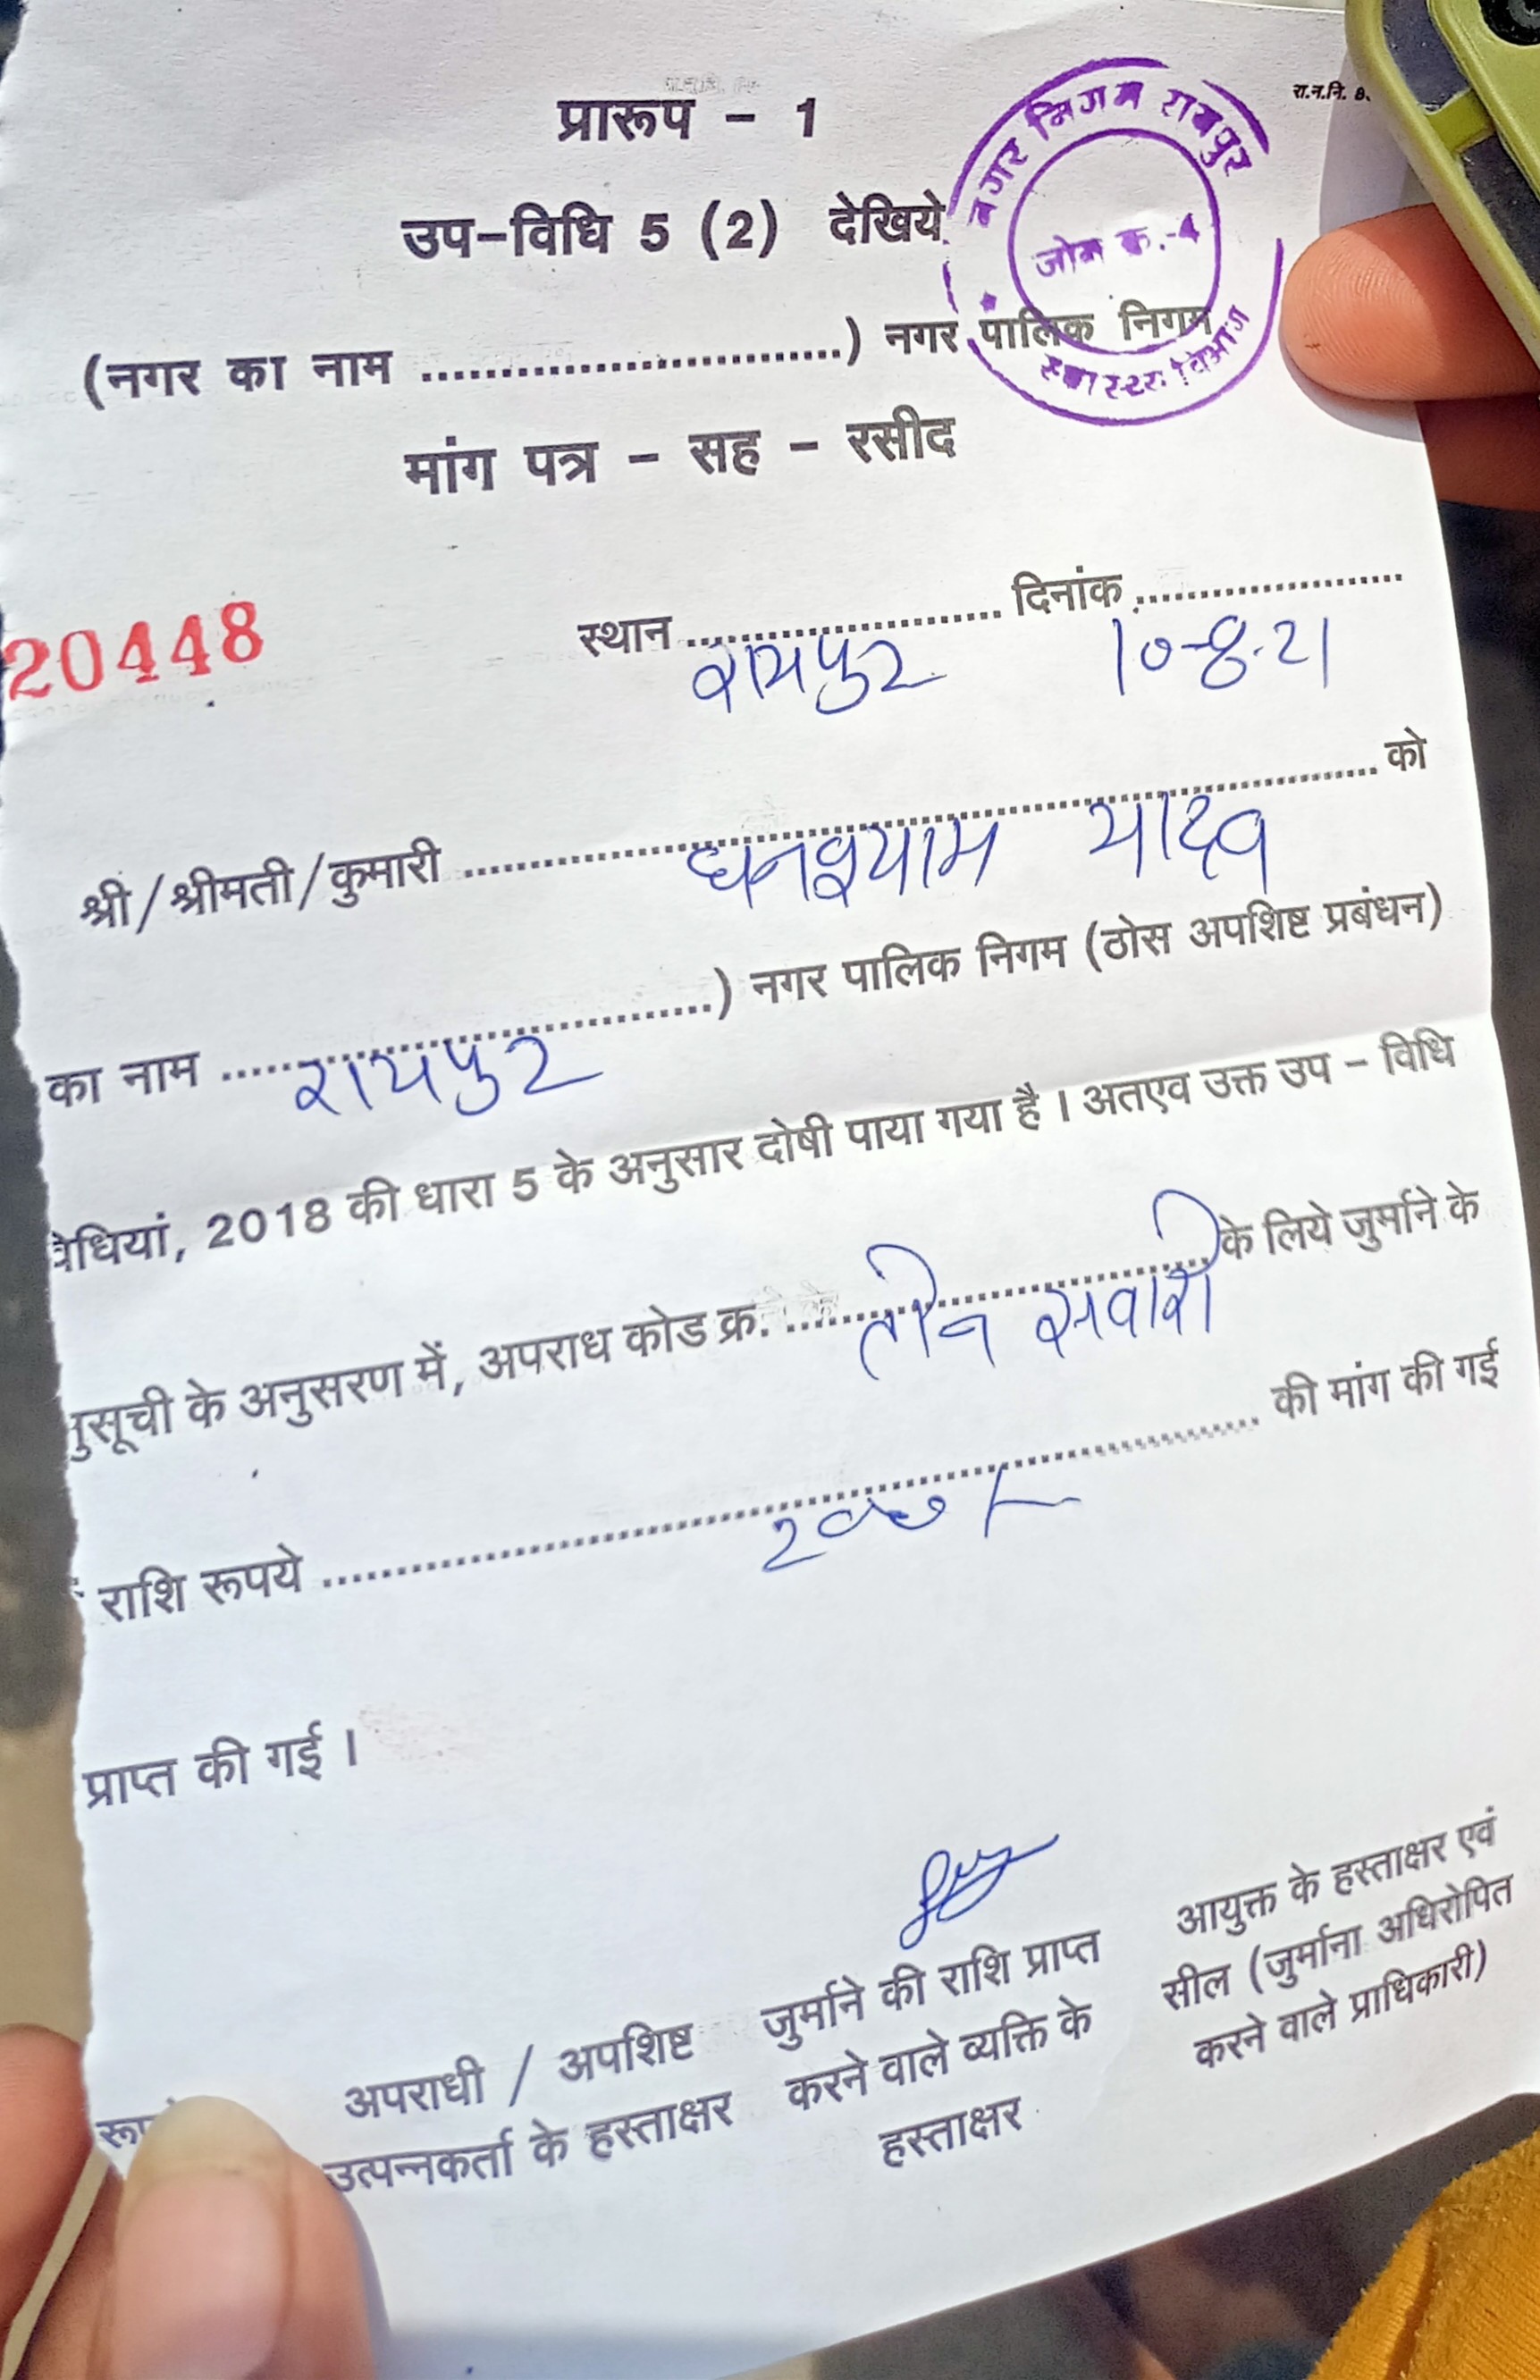 रा.न.नि. 8.
प्रारूप - 1
उप-विधि 5 (2) देखिये
नगर निगम रायपुर
जोन क्र.-4
स्वास्थ्य विभाग
(नगर का नाम ..............................) नगर पालिक निगम
मांग पत्र - सह - रसीद
20448
स्थान ........................ दिनांक ........................
रायपुर 10-8-21
श्री/श्रीमती/कुमारी ........................ को
घनश्याम यादव
का नाम ........................) नगर पालिक निगम (ठोस अपशिष्ट प्रबंधन)
रायपुर
विधियां, 2018 की धारा 5 के अनुसार दोषी पाया गया है । अतएव उक्त उप - विधि
नुसूची के अनुसरण में, अपराध कोड क्र. ........................ के लिये जुर्माने के
तीन सवारी
राशि रूपये ........................ की मांग की गई
प्राप्त की गई ।
अपराधी / अपशिष्ट
उत्पन्नकर्ता के हस्ताक्षर
जुर्माने की राशि प्राप्त
करने वाले व्यक्ति के
हस्ताक्षर
आयुक्त के हस्ताक्षर एवं
सील (जुर्माना अधिरोपित
करने वाले प्राधिकारी)